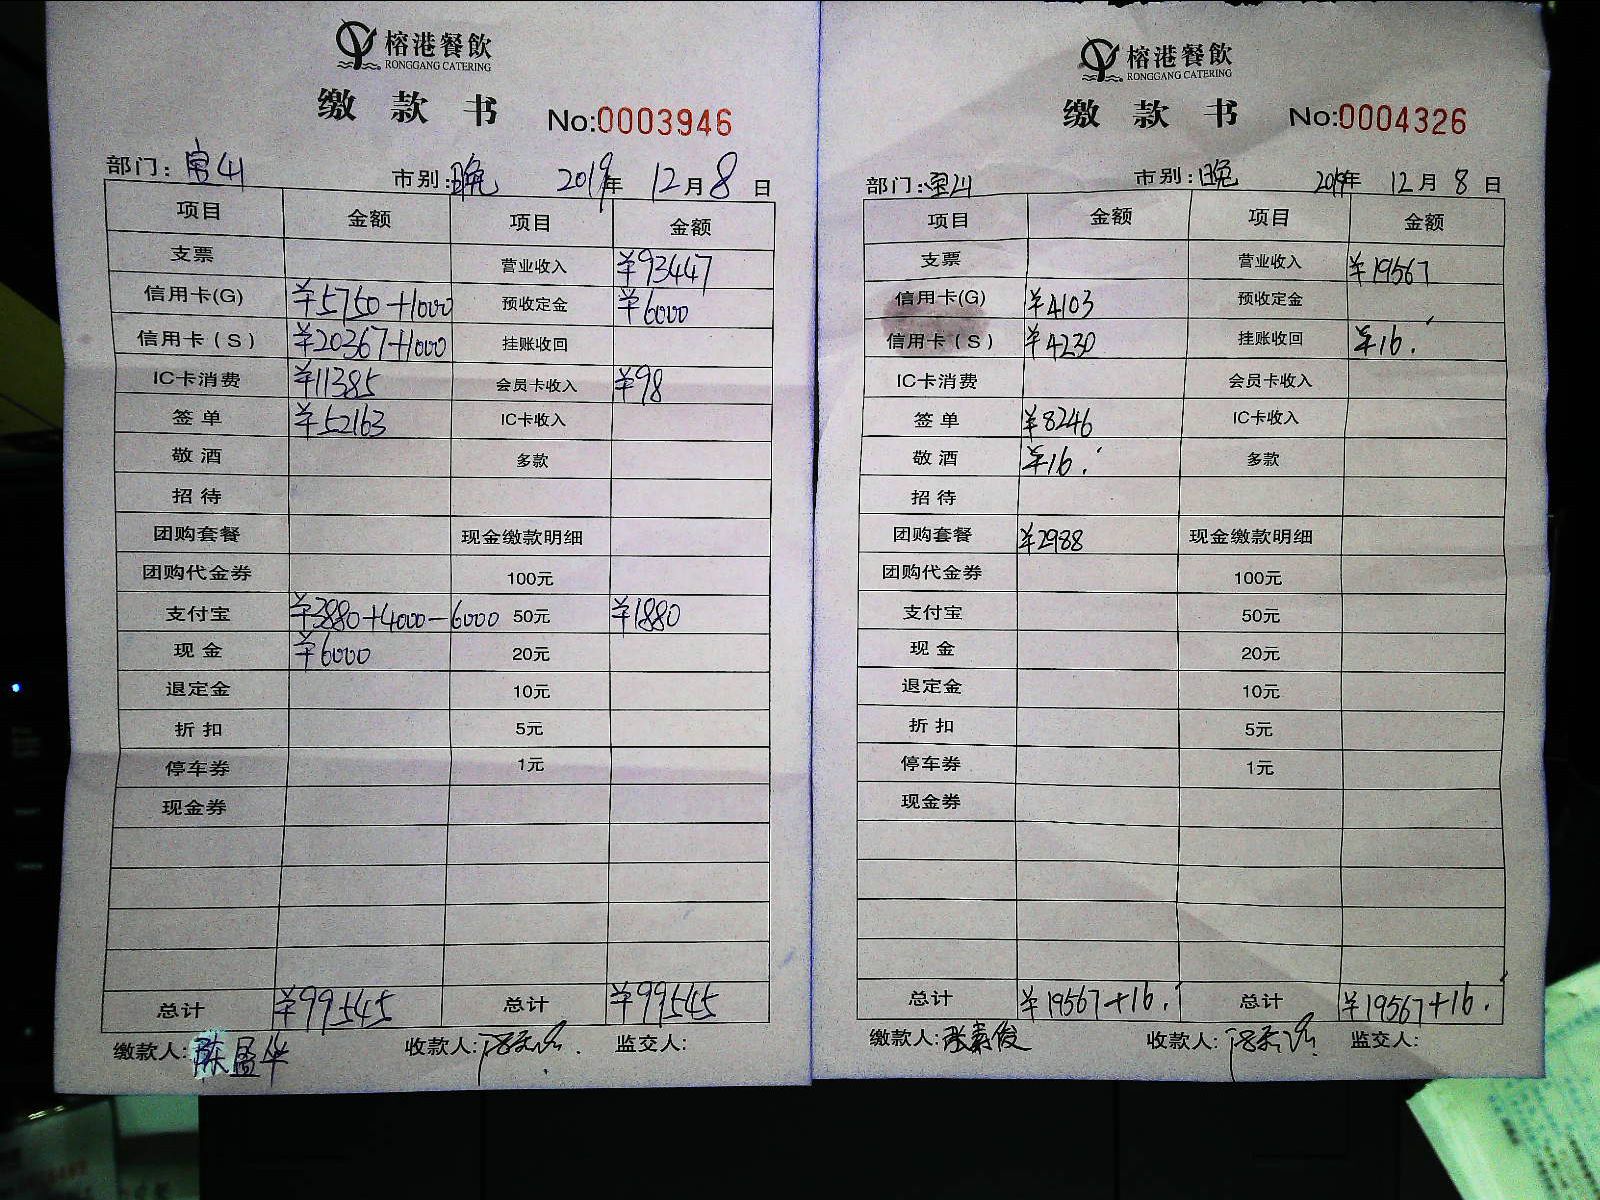 榕港餐飲
RONGGANG CATERING
缴款书 No:0003946
部门: 宝山 市别: 晚 2019年 12月 8日
项目 金额 项目 金额
支票 营业收入 ¥93447
信用卡(G) ¥5750+1000 预收定金 ¥6000
信用卡(S) ¥20367+1000 挂账收回
IC卡消费 ¥11385 会员卡收入 ¥98
签单 ¥52163 IC卡收入
敬酒 多款
招待
团购套餐 现金缴款明细
团购代金券 100元
支付宝 ¥3880+4000-6000 50元 ¥1880
现金 ¥6000 20元
退定金 10元
折扣 5元
停车券 1元
现金券
总计 ¥99545 总计 ¥99545
缴款人: 收款人: 监交人:
榕港餐飲
RONGGANG CATERING
缴款书 No:0004326
部门: 宝山 市别: 晚 2019年 12月 8日
项目 金额 项目 金额
支票 营业收入 ¥19567
信用卡(G) ¥4103 预收定金
信用卡(S) ¥4230 挂账收回 ¥16.
IC卡消费 会员卡收入
签单 ¥8246 IC卡收入
敬酒 ¥16. 多款
招待
团购套餐 ¥2988 现金缴款明细
团购代金券 100元
支付宝 50元
现金 20元
退定金 10元
折扣 5元
停车券 1元
现金券
总计 ¥19567+16. 总计 ¥19567+16.
缴款人: 收款人: 监交人: